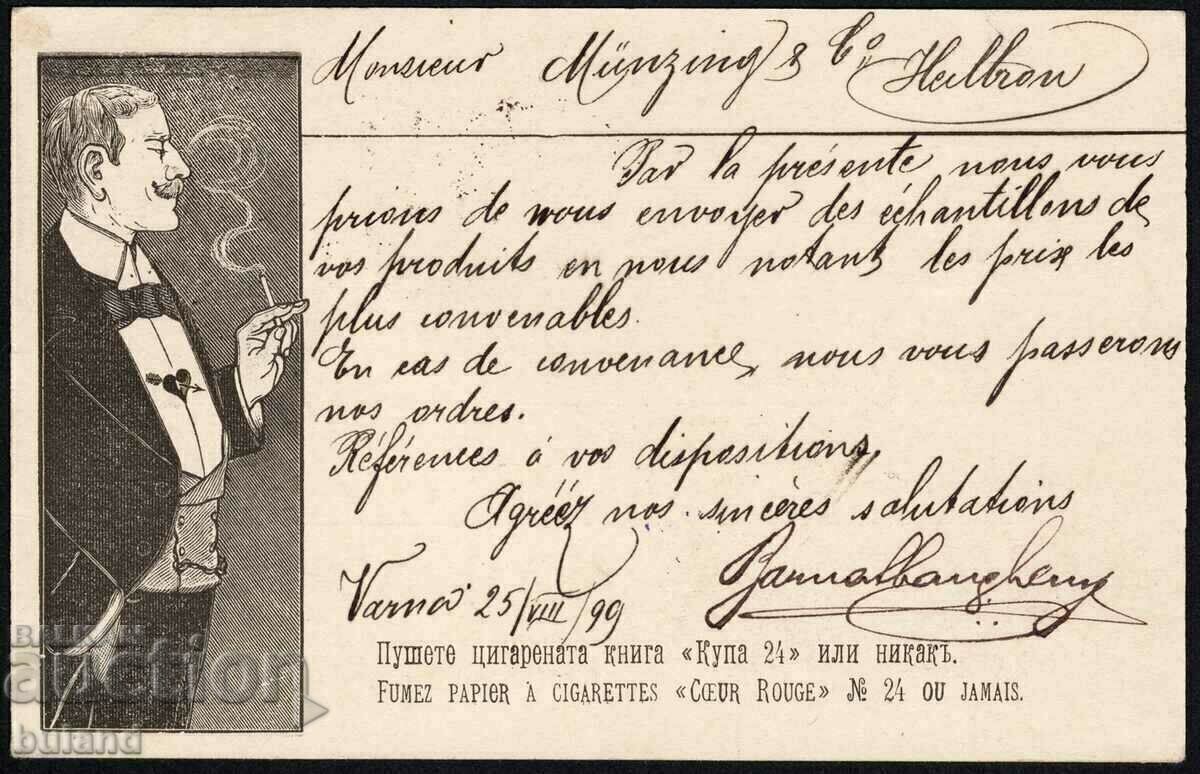 Monsieur Münzing & Co Heilbron
Par la présente nous vous
prions de nous envoyer des échantillons de
vos produits en nous notant les prix les
plus convenables.
En cas de convenance, nous vous passerons
nos ordres.
Références à vos dispositions.
Agréez nos sincères salutations
Varna 25/VIII/99
Пушете цигарената книга «Купа 24» или никакъ.
Fumez papier à cigarettes «Cœur Rouge» № 24 ou jamais.
BALKAN
auction
buland